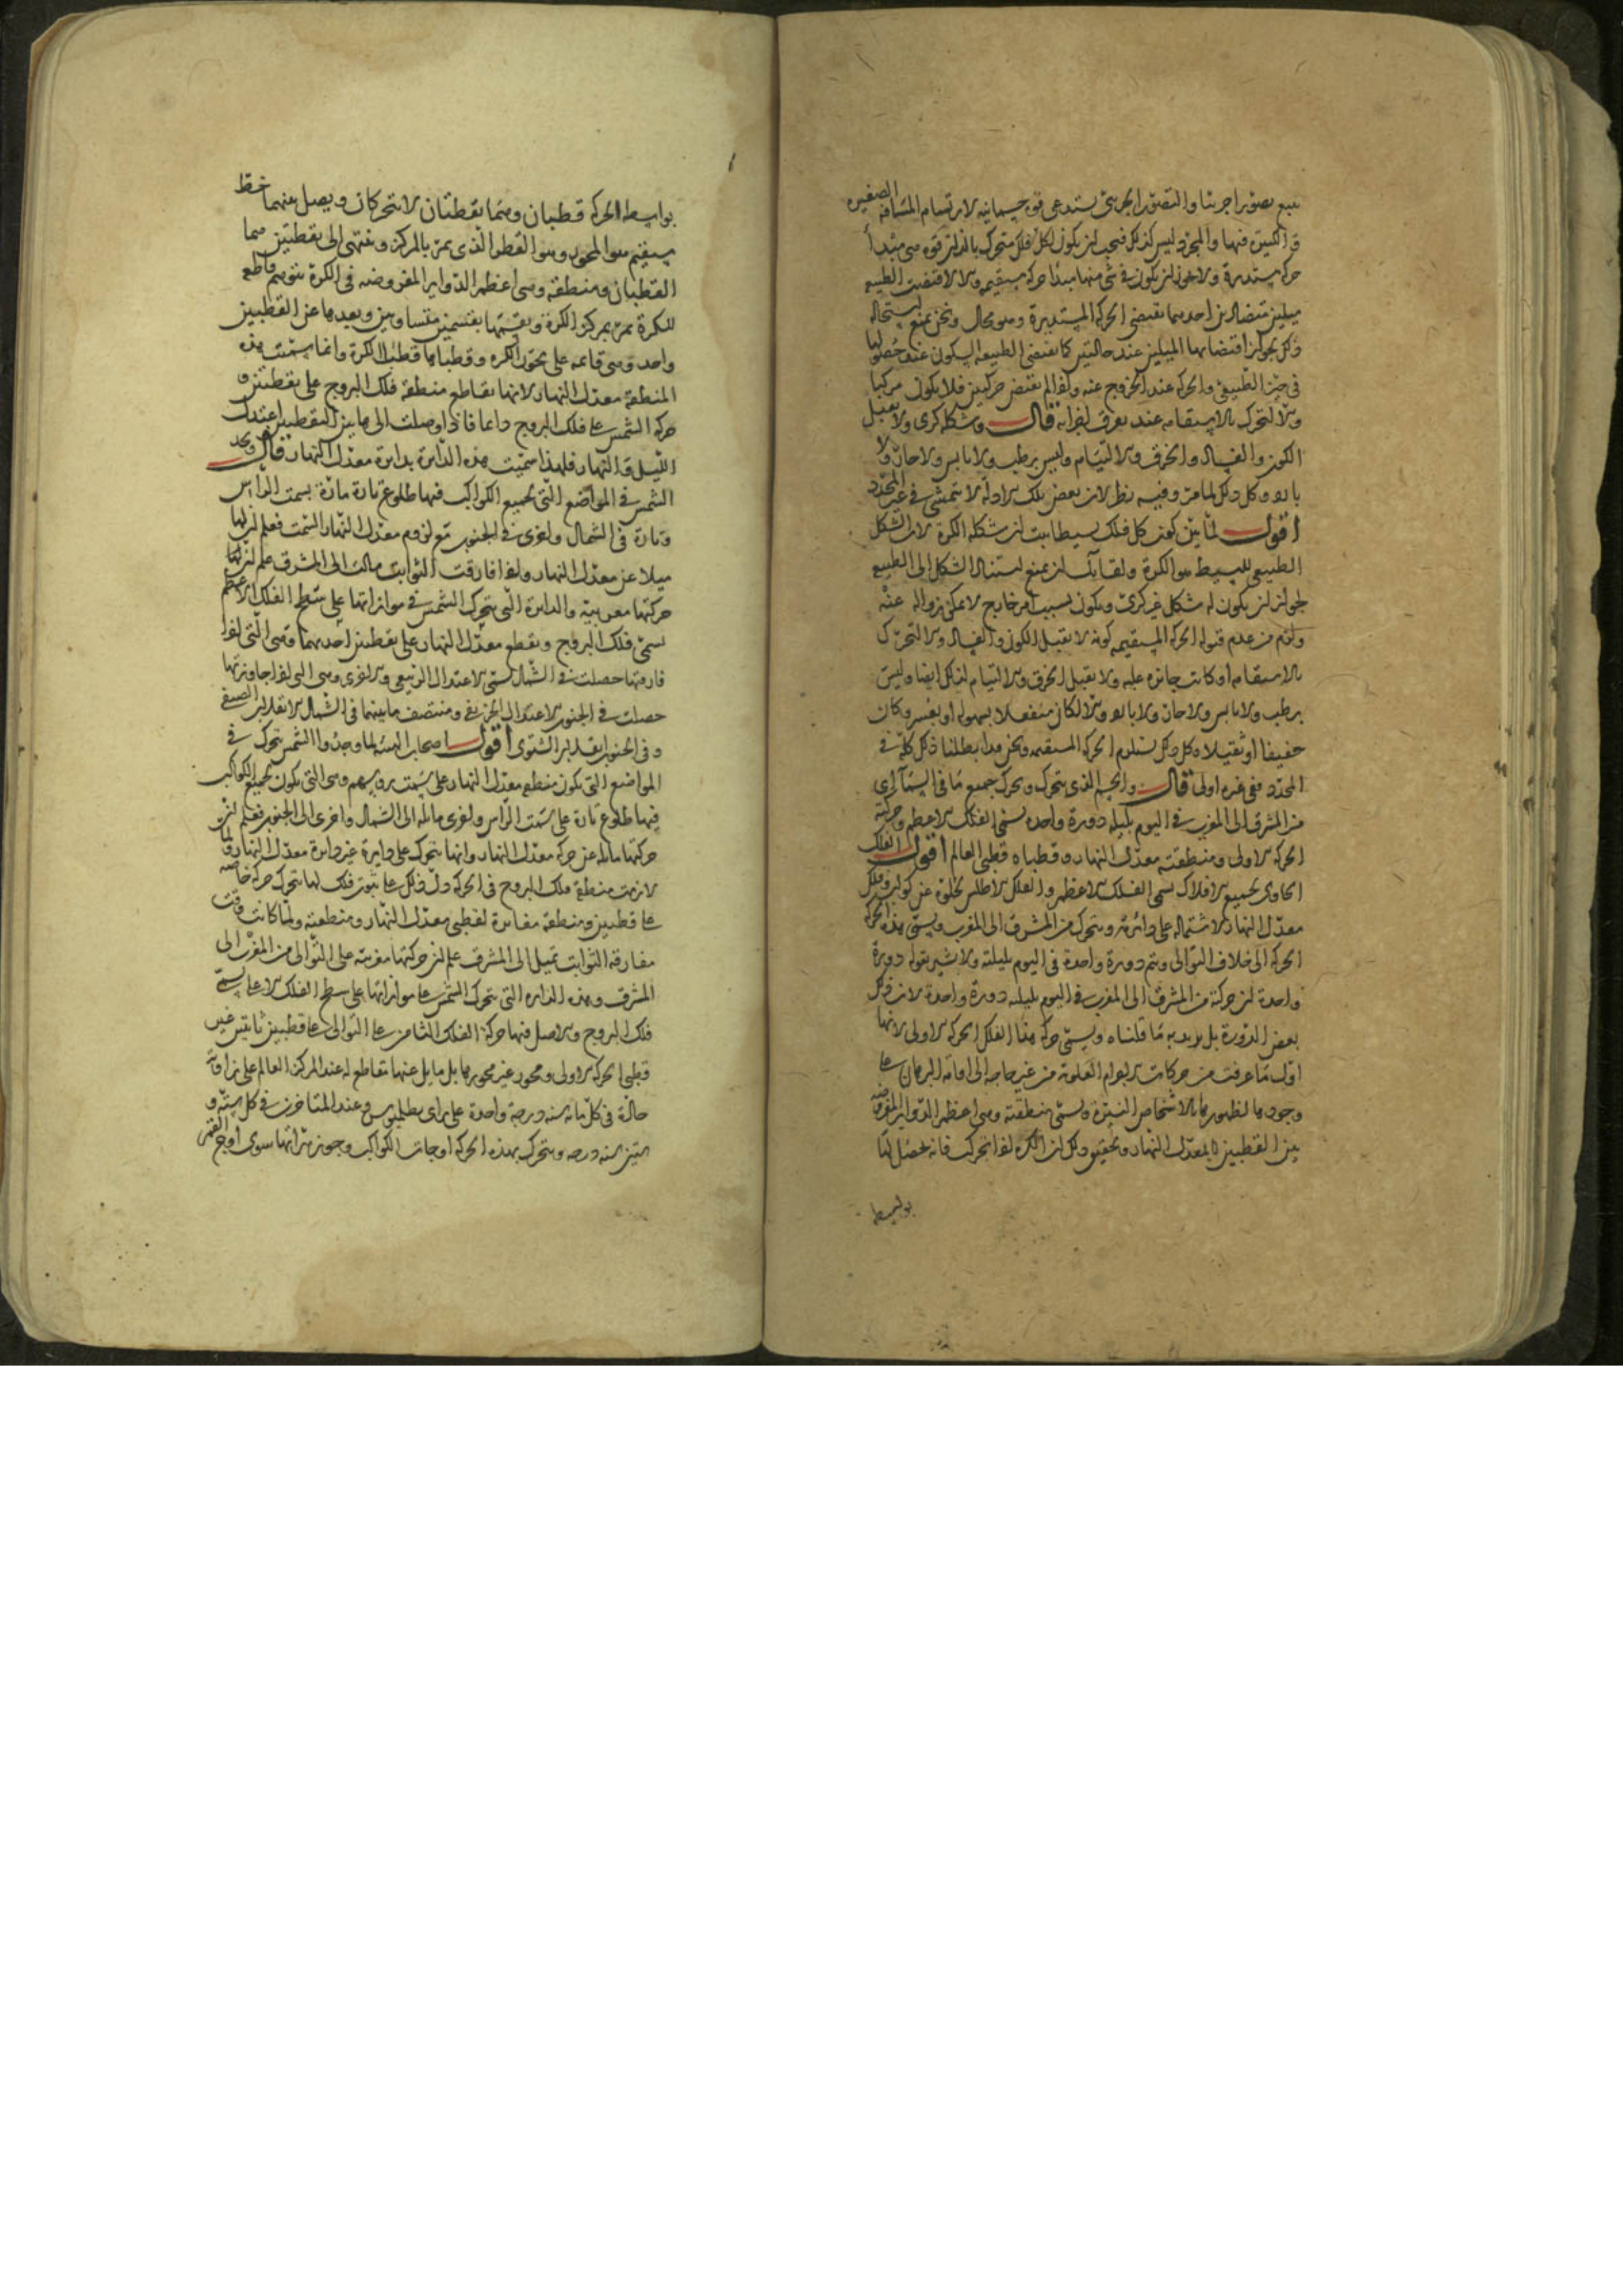 يتبع تصورا جزئيا والتصور الجزئي يستدعي قوة جسمانية لارتسام المسافة الصغيرة
والكبيرة فيها والمجرد ليس كذلك فيجب ان يكون لكل فلك متحرك بالذات قوة هي مبدأ
حركة مستديرة ولا يجوز ان يكون في شئ منها مبدأ حركة مستقيمة والا لاقتضت الطبيعة
ميلين متضادين احدهما يقتضي الحركة المستديرة وهو محال ونحن نمنع استحالة
ذلك لجواز اقتضائها الميلين عند حالتين كما يقتضي الطبيعة السكون عند حصولها
في حيز الطبيعي والحركة عند الخروج عنه واذا لم يقتض حركتين فلا يكون مركبا
والا لتحرك بالاستقامة عند تفرق اجزائه قال وشكله كرى ولا يقبل
الكون والفساد والخرق والالتيام وليس برطب ولا يابس ولا حار ولا
بارد وكل ذلك لما مر وفيه نظر لان بعض تلك الادلة لا يتمشى في غير المحدد
اقول لما بين كون كل فلك بسيطا ثبت ان شكله الكرة لان الشكل
الطبيعي للبسيط هو الكرة ولقائل ان يمنع استناد الشكل الى الطبيعة
لجواز ان يكون له شكل غير كرى ويكون بسبب امر خارج لا يمكن زواله عنه
ولزم من عدم قبوله الحركة المستقيمة كونه لا يقبل الكون والفساد والا لتحرك
بالاستقامة او كانت جائزة عليه ولا يقبل الخرق والالتيام لذلك ايضا وليس
برطب ولا يابس ولا حار ولا بارد والا لكان منفعلا بسهولة او بعسر وكان
خفيفا او ثقيلا وكل ذلك يستلزم الحركة المستقيمة ونحن قد ابطلنا ذلك كله في
المحدد ففي غيره اولى قال والجسم الذي يتحرك ويحرك جميع ما في السماء الذي
من المشرق الى المغرب في اليوم بليلة دورة واحدة يسمى الفلك الاعظم وحركته
الحركة الاولى ومنطقته معدل النهار وقطباه قطبي العالم اقول الفلك
الحاوي لجميع الافلاك يسمى الفلك الاعظم والفلك الاطلس لخلوه عن كواكب وفلك
معدل النهار لاشتماله على دائرته ويتحرك من المشرق الى المغرب ويسمى هذه الحركة
الحركة الى خلاف التوالي ويتم دورة واحدة في اليوم بليلته ولا يشير بقوله دورة
واحدة ان حركته من المشرق الى المغرب في اليوم بليلة دورة واحدة لان ذلك
بعض الدورة بل يريد به ما قلناه ويسمى حركة هذا الفلك الحركة الاولى لانها
اول ما عرفت من حركات الاجرام العلوية من غير حاجة الى اقامة البرهان على
وجودها لظهورها بالاشخاص النيرة ويسمى منطقته وهي اعظم الدوائر المفروضة
بين القطبين بمعدل النهار وتحقيق ذلك ان الكرة اذا تحركت فانه يحصل لها
بواسطة
بواسطة الحركة قطبان وهما نقطتان لا يتحركان ويصل بينهما خط
مستقيم هو المحور وهو القطر الذي يمر بالمركز وينتهي الى نقطتين هما
القطبان ومنطقة وهي اعظم الدوائر المفروضة في الكرة نتوهم قاطع
للكرة يمر بمركز الكرة ويقسمها بقسمين متساويين وبعدها عن القطبين
واحد وهي قائمة على محور الكرة وقطباها قطبا الكرة وانما سميت هذه
المنطقة معدل النهار لانها تقاطع منطقة فلك البروج على نقطتين و
حركة الشمس على فلك البروج دائما فاذا وصلت الى هاتين النقطتين اعتدل
الليل والنهار فلهذا سميت هذه الدائرة بدائرة معدل النهار قال ويجد
الشمس في المواضع التي لجميع الكواكب فيها طلوع تارة مارة بسمت الرأس
وتارة في الشمال واخرى في الجنوب مع لزوم معدل النهار السمت فعلم ان لها
ميلا عن معدل النهار واذا فارقت الثوابت مالت الى المشرق علم ان لها
حركتها مغربية والدائرة التي يتحرك الشمس في موازاتها على سطح الفلك الاعظم
تسمى فلك البروج ويقطع معدل النهار على نقطتين احدهما وهي التي اذا
فارقتها حصلت في الشمال تسمى الاعتدال الربيعي والاخرى وهي التي اذا جاوزتها
حصلت في الجنوب الاعتدال الخريفي ومنتصف ما بينهما في الشمال الانقلاب الصيفي
وفي الجنوب انقلاب الشتوى اقول اصحاب الهيئة لما وجدوا الشمس يتحرك في
المواضع التي يكون منطقة معدل النهار على سمت رؤسهم وهي التي يكون لجميع الكواكب
فيها طلوع تارة على سمت الرأس واخرى مائلة الى الشمال واخرى الى الجنوب فعلم ان
حركتها مائلة عن حركة معدل النهار وانها يتحرك على دايرة غير دائرة معدل النهار ولما
لازمت منطقة فلك البروج في الحركة دل ذلك على ثبوت فلك لها يتحرك حركة خاصة
على قطبين ومنطقة مغايرة لقطبي معدل النهار ومنطقته ولما كانت وقت
مفارقة الثوابت تميل الى المشرق علم ان حركتها مغربية على التوالي من المغرب الى
المشرق وهذه الدائرة التي يتحرك الشمس على موازاتها على سطح الفلك الاعلى يسمى
فلك البروج والاصل فيها حركة الفلك الثامن على التوالي على قطبين ثابتين غير
قطبي الحركة الاولى ومحور غير محورها بل مايل عنها مقاطع له عند المركز العالم على زاوية
حادة في كل مائة سنة درجة واحدة على راى بطليوس وعند المتاخرين في كل ستة و
ستين سنة درجة ويتحرك بهذه الحركة اوجات الكواكب وجوزهراتها سوى اوج القمر